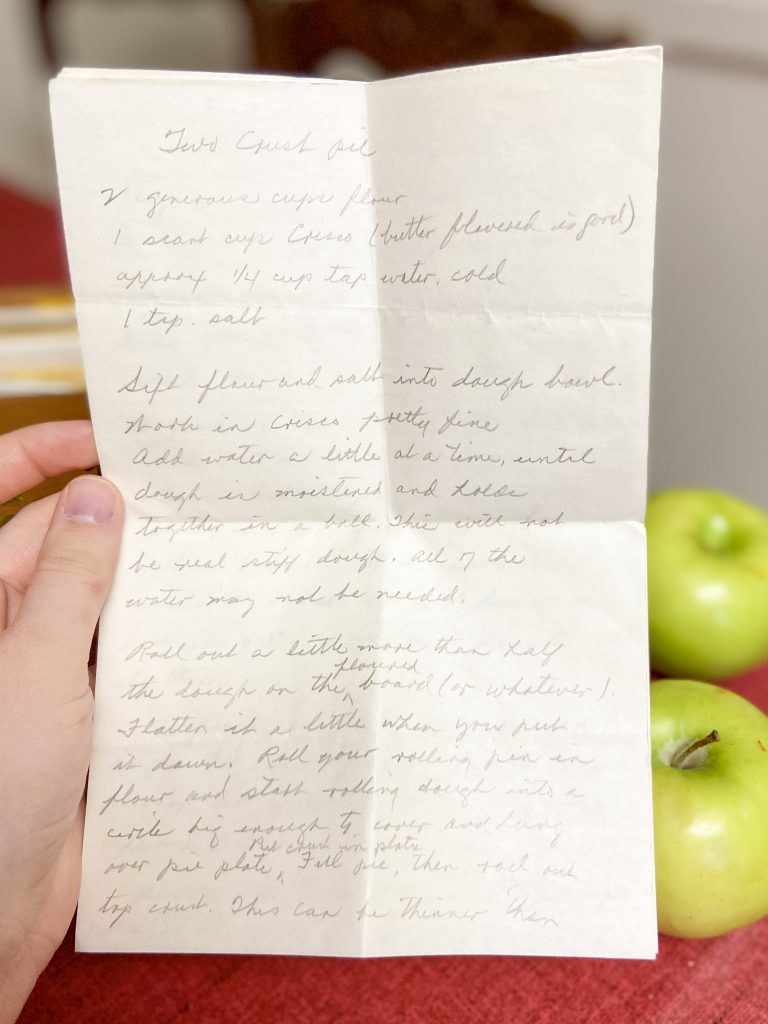 Two Crust pie
2 generous cups flour
1 scant cup Crisco (butter flavored is good)
approx 1/4 cup tap water, cold
1 tsp. salt
Sift flour and salt into dough bowl.
Work in Crisco pretty fine
Add water a little at a time, until
dough is moistened and holds
together in a ball. This will not
be real stiff dough. All of the
water may not be needed.
Roll out a little more than half
floured
the dough on the ^ board (or whatever).
Flatten it a little when you put
it down. Roll your rolling pin in
flour and start rolling dough into a
circle big enough to cover and hang
Put crust in plate
over pie plate ^. Fill pie, then roll out
top crust. This can be thinner than